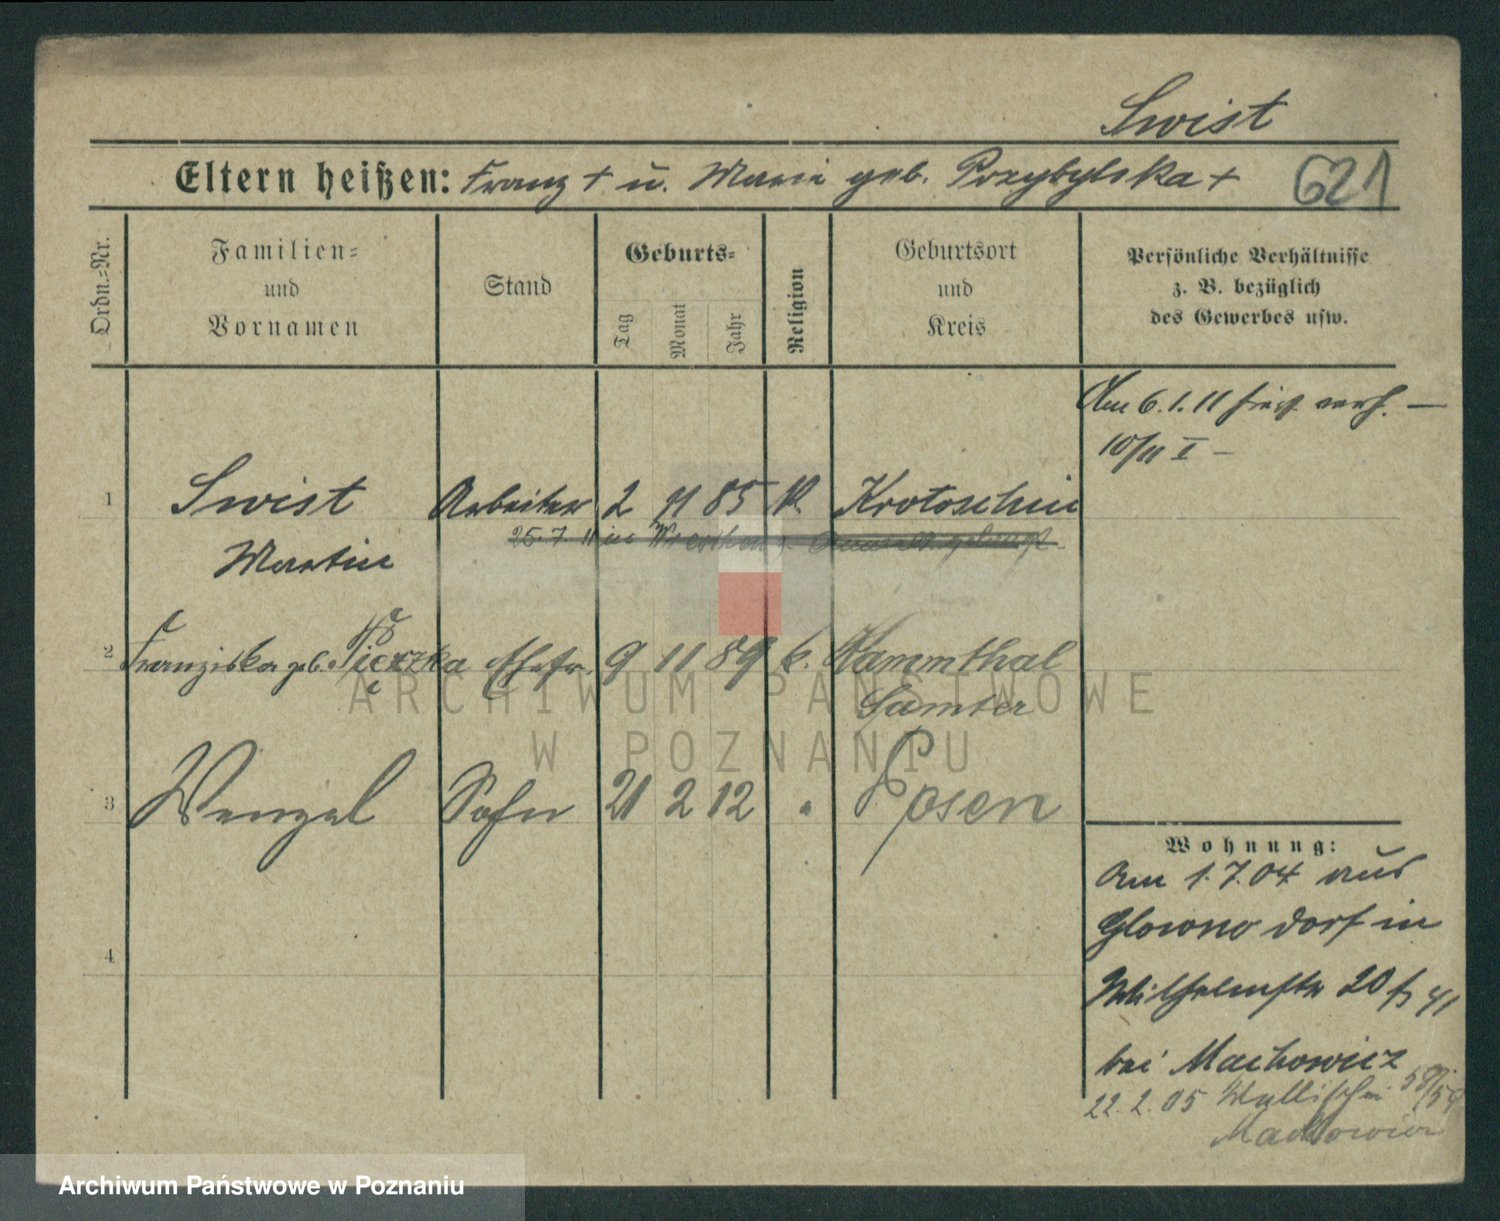 Swist
Eltern heißen: Franz + u. Marie geb. Przybylska +
621
Ordn.-Nr.
Familien-
und
Vornamen
Stand
Geburts-
Tag
Monat
Jahr
Religion
Geburtsort
und
Kreis
Persönliche Verhältnisse
z. B. bezüglich
des Gewerbes usw.
Am 6.1.11 hier verh. —
10/11 I —
1 Swist Arbeiter 2 11 85 K. Krotoschin
25.7 11 in
Martin
2 Franziska geb. Ehefr. 9 11 89 k. Kammthal
Samter
3 Wenzel Sohn 21 2 12 " Posen
4
Wohnung:
Am 1.7.04 aus
Glowno dorf in
Wilhelmstr 20
bei Machowicz
22.2.05 Wallischei 58/59
Machowicz
ARCHIWUM PAŃSTWOWE
W POZNANIU
Archiwum Państwowe w Poznaniu